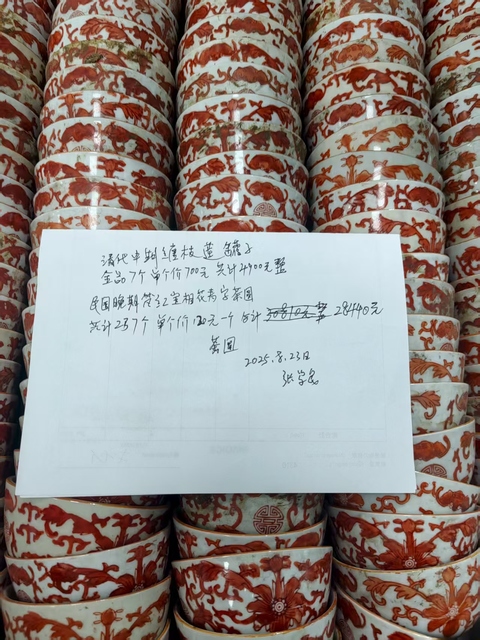 清代中期缠枝莲罐子
全品7个单个价700元共计4900整
民国晚期矾红宝相花寿字茶圆
共计237个单个价120元一个合计 28440元
茶圆
2025.8.23日